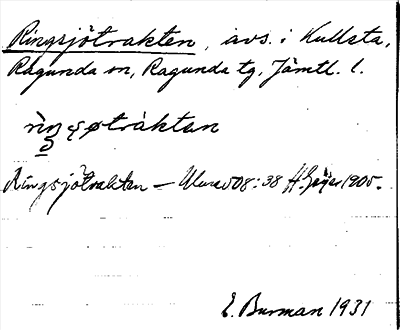 Ringsjötrakten, avs. i Kullsta,
Ragunda sn, Ragunda tg, Jämtl. l.
Ringsjötrakten — 508:38 H. Geijer 1905.
E. Burman 1931